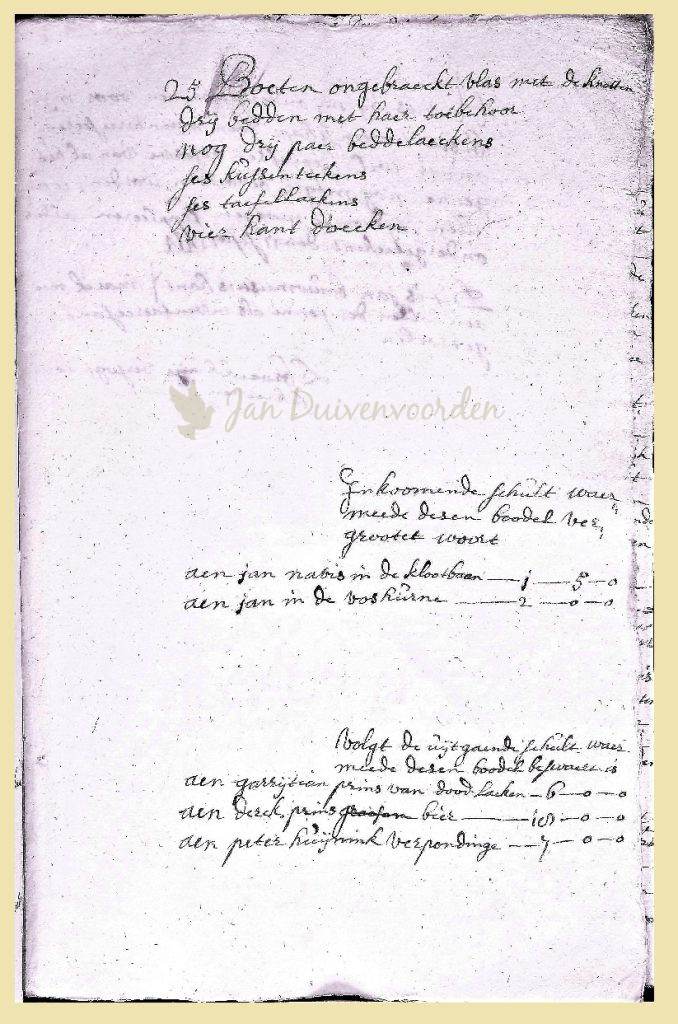 25 Boeten ongebraeckt vlas met de knotten
drij bedden met haer toebehoor
nog drij paer beddelaeckens
ses kussenteekens
ses taefellaekens
vier hant doecken
Jan Duivenvoorden
Inkoomende schult waer
meede desen boodel ver
grootet woort
aen jan nabis in de klootbaan — 1 — 5 — 0
aen jan in de voshurne — 2 — 0 — 0
Volgt de uijtgaende schult waer
meede desen boodel beswaert is
aen garrijtien prins van dood laeken — 6 — 0 — 0
aen derck prins bier — 10 — 0 — 0
aen peter huijnink verpondinge — 7 — 0 — 0